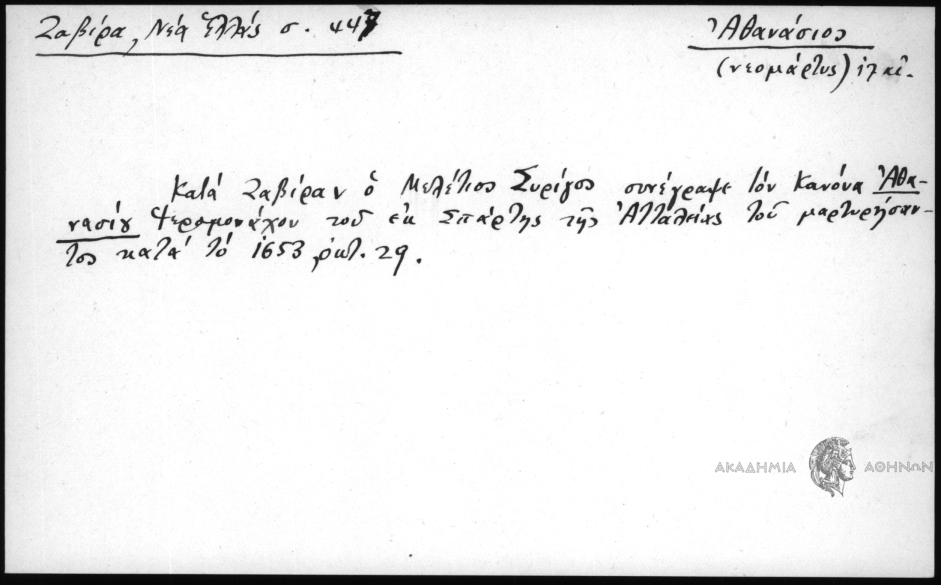 Ζαβίρα, Νέα Ἑλλάς σ. 447
Ἀθανάσιος
(νεομάρτυς) ιζ αἰ.
Κατά Ζαβίραν ὁ Μελέτιος Συρίγος συνέγραψε τόν Κανόνα Ἀθα-
νασίου Ἱερομονάχου τοῦ ἐκ Σπάρτης τῆς Ἀτταλείας τοῦ μαρτυρήσαν-
τος κατά τό 1653 ὀκτ. 29.
ΑΚΑΔΗΜΙΑ ΑΘΗΝΩΝ